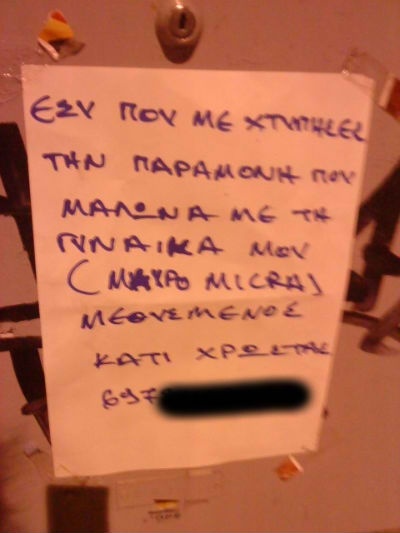 ΕΣΥ ΠΟΥ ΜΕ ΧΤΥΠΗΣΕΣ
ΤΗΝ ΠΑΡΑΜΟΝΗ ΠΟΥ
ΜΑΛΩΝΑ ΜΕ ΤΗ
ΓΥΝΑΙΚΑ ΜΟΥ
(ΜΑΥΡΟ MICRA)
ΜΕΘΥΣΜΕΝΟΣ
ΚΑΤΙ ΧΡΩΣΤΑΣ
697